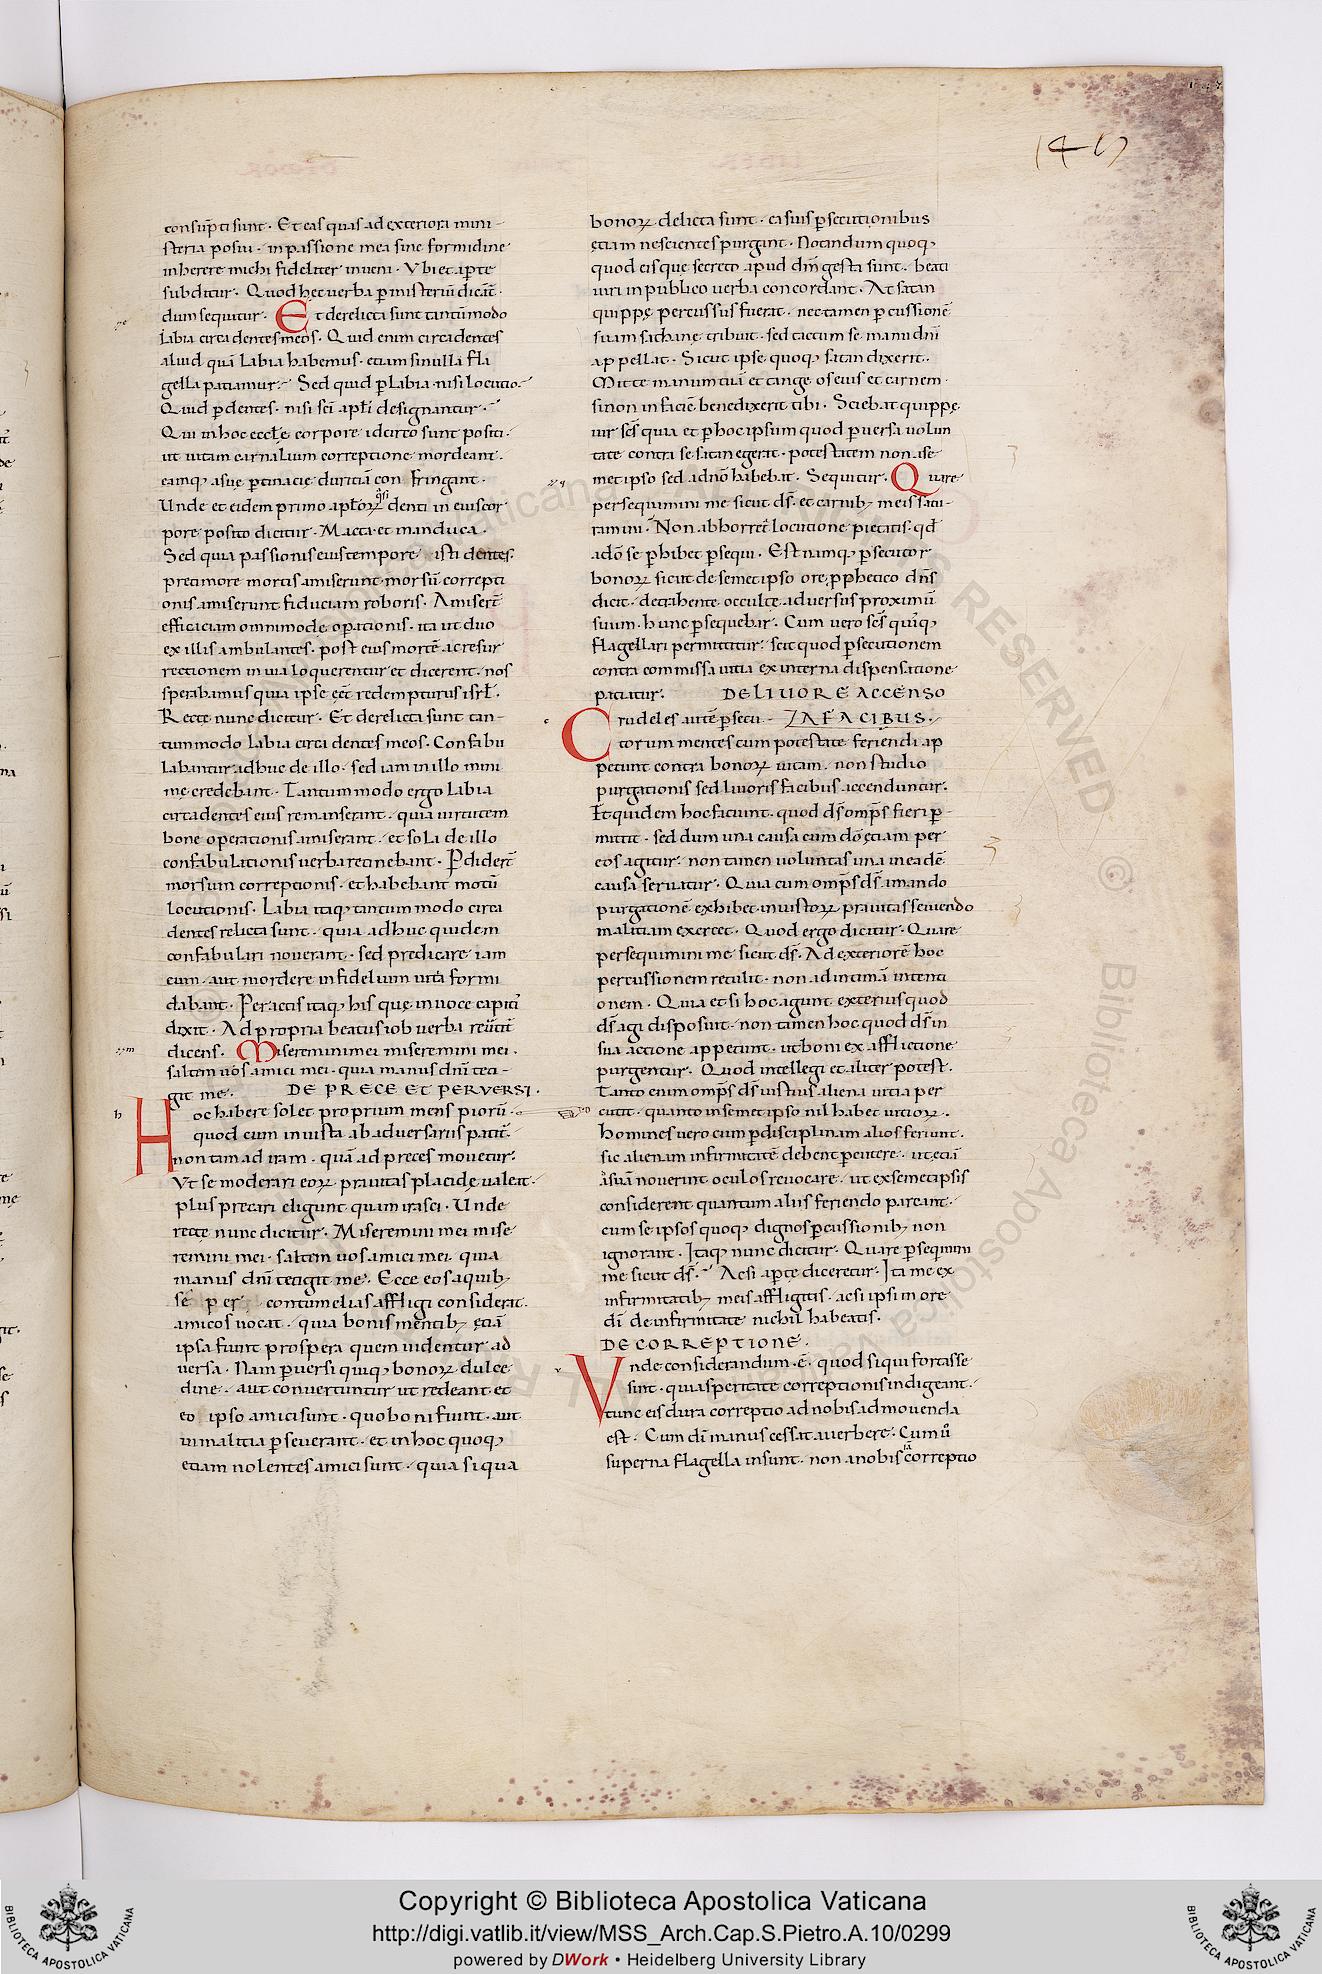 147
consūpti sunt · Et eas quas ad exteriora mini-
steria posui · in passione mea sine formidine
inherere michi fideliter inueni · Vbi et aꝑte
subditur · Quod hęc uerba ꝑ misteriū dicāt ·
dum sequitur · Et derelicta sunt tantūmodo
labia circa dentes meos · Quid enim circa dentes
aliud quā labia habemus · etiam si nulla fla
gella patiamur · Sed quid ꝑ labia nisi locutio ·
Quid ꝑ dentes · nisi sc̄i apl̄i designantur ·
Qui in hoc eccl̄ę corpore idcirco sunt positi ·
ut uitam carnalium correptione mordeant ·
eamq; a suę ꝑtinacię duriciā con fringant ·
Unde et eidem primo apl̄oꝝ denti in eius cor
pore posito dicitur · Macta et manduca ·
Sed quia passionis eius tempore isti dentes
pre timore mortis amiserunt morsū correpti
onis amiserunt fiduciam roboris · Amisert̄
efficaciam omnimodę oꝑationis · ita ut duo
ex illis ambulantes · post eius mortē ac resur
rectionem in uia loquerentur et dicerent · nos
sperabamus quia ipse eēt redempturus isrł ·
Recte nunc dicitur · Et derelicta sunt tan-
tummodo labia circa dentes meos · Confabu
labantur adhuc de illo · sed iam in illo mini
mę credebant · Tantummodo ergo labia
circa dentes eius remanserant · quia uirtutem
bone operationis amiserant · et sola de illo
confabulationis uerba retinebant · Ꝑdidert̄
morsum correptionis · et habebant motū
locutionis · Labia itaq; tantum modo circa
dentes relicta sunt · quia adhuc quidem
confabulari nouerant · sed predicare iam
eum · aut mordere infidelium uita formi
dabant · Peractis itaq; his quę in uoce capitis
dixit · Ad propria beatus iob uerba reūtit̄
dicens · Miseremini mei miseremini mei ·
saltem uos amici mei · quia manus dn̄i teti-
git me · DE PRECE ET PERVERSI ·
Hoc habere solet proprium mens piorū ·
quod cum iniusta ab aduersariis patit̄ ·
non tam ad iram · quā ad preces mouetur ·
Vt se moderari eoꝝ prauitas placide ualeat ·
plus precari eligunt quam irasci · Unde
recte nunc dicitur · Miseremini mei mise
remini mei · saltem uos amici mei · quia
manus dn̄i tetigit me · Ecce eos a quib;
sé ꝑ er contumelias affligi considerat ·
amicos uocat · quia bonis mentib; etiā
ipsa fiunt prospera quem uidentur ad
uersa · Nam ꝑuersi quiq; bonoꝝ dulce
dine · aut conuertuntur ut redeant · et
eo ipso amici sunt · quo boni fiunt · aut
in malitia ꝑseuerant · et in hoc quoq;
etiam nolentes amici sunt · quia si qua
bonoꝝ delicta sunt · ea suis ꝑsecutionibus
ętiam nescientes purgant · Notandum quoq;
quod eis que secreto apud dn̄m gesta sunt · beati
uiri in publico uerba concordant · At satan
quippe percussus fuerat · nec tamen ꝑcussionē
suam sathanę tribuit · sed tactum se manu dn̄i
appellat · Sicut ipse quoq; satan dixerit ·
Mitte manum tuā et tange os eius et carnem ·
si non in faciē benedixerit tibi · Sciebat quippe
uir sc̄s quia et ꝑ hoc ipsum quod ꝑuersa uolun
tate contra se satan egerit · potestatem non a se
met ipso sed a dn̄o habebat · Sequitur · Quare
persequimini me sicut ds̄ · et carnib; meis satu-
ramini · Non abhorret locutione pietatis · qd̄
a dō se ꝑhibet ꝑsequi · Est namq; ꝑsecutor
bonoꝝ sicut de semet ipso ore ꝓphetico dn̄s
dicit · detrahente occulte aduersus proximū
suum · hunc ꝑsequebar · Cum uero sc̄s quisq;
flagellari permittitur · scit quod ꝑsecutionem
contra commissa uitia ex interna dispensatione
patiatur · DE LIUORE ACCENSO
Crudeles autē ꝑsecu- ZA FACIBUS ·
torum mentes cum potestate feriendi ap
petunt contra bonoꝝ uitam · non studio
purgationis sed liuoris facibus accenduntur ·
Et quidem hoc faciunt · quod ds̄ omp̄s fieri ꝑ
mittit · sed dum una causa cum dō etiam per
eos agitur · non tamen uoluntas una in eadē
causa seruatur · Quia cum omp̄s ds̄ amando
purgationē exhibet · iniustoꝝ prauitas seuiendo
malitiam exercet · Quod ergo dicitur · Quare
persequimini me sicut ds̄ · Ad exteriorē hoc
percussionem retulit · non ad intimā intenti
onem · Quia etsi hoc agunt exterius quod
ds̄ agi disposuit · non tamen hoc quod ds̄ in
sua actione appetunt · ut boni ex afflictione
purgentur · Quod intellegi et aliter potest ·
Tanto enim omp̄s ds̄ iustius aliena uitia per
cutit · quanto in semet ipso nil habet uitioꝝ ·
homines uero cum ꝑ disciplinam alios feriunt ·
sic alienam infirmitatē debent ꝑcutere · ut etiā
ad suā nouerint oculos reuocare · ut ex semetipsis
considerent quantum aliis feriendo parcant ·
cum se ipsos quoq; dignos ꝑcussionib; non
ignorant · Itaq; nunc dicitur · Quare ꝑseqimini
me sicut ds̄ · Acsi aꝑte diceretur · Ita me ex
infirmitatib; meis affligitis · acsi ipsi more
dī de infirmitate nichil habeatis ·
DE CORREPTIONE ·
Vnde considerandum · ē · quod si qui fortasse
sint · qui asperitate correptionis indigeant ·
tunc eis dura correptio a d nobis admouenda
est · Cum dī manus cessat a uerbere · Cum ū
superna flagella insunt · non a nobis ia correptio
Copyright © Biblioteca Apostolica Vaticana
http://digi.vatlib.it/view/MSS_Arch.Cap.S.Pietro.A.10/0299
powered by DWork • Heidelberg University Library
BIBLIOTECA APOSTOLICA VATICANA
BIBLIOTECA APOSTOLICA VATICANA